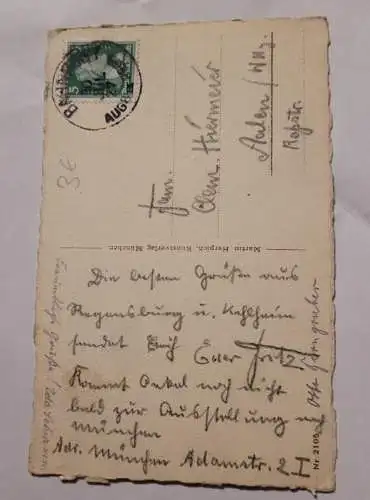 5
30
JUL
27
AUGS
Fam.
Clem. Hiermeier
Aalen / Wttg.
Roßstr.
36
Martin Herpich, Kunstverlag München.
Die besten Grüße aus
Regensburg u. Kehlheim
sendet Euch Euer Fritz
Kommt Onkel noch nicht
bald zur Ausstellung nach
München
Adr. München Adamstr. 2 I
Otto
Freundliche Grüße
Nr. 2105